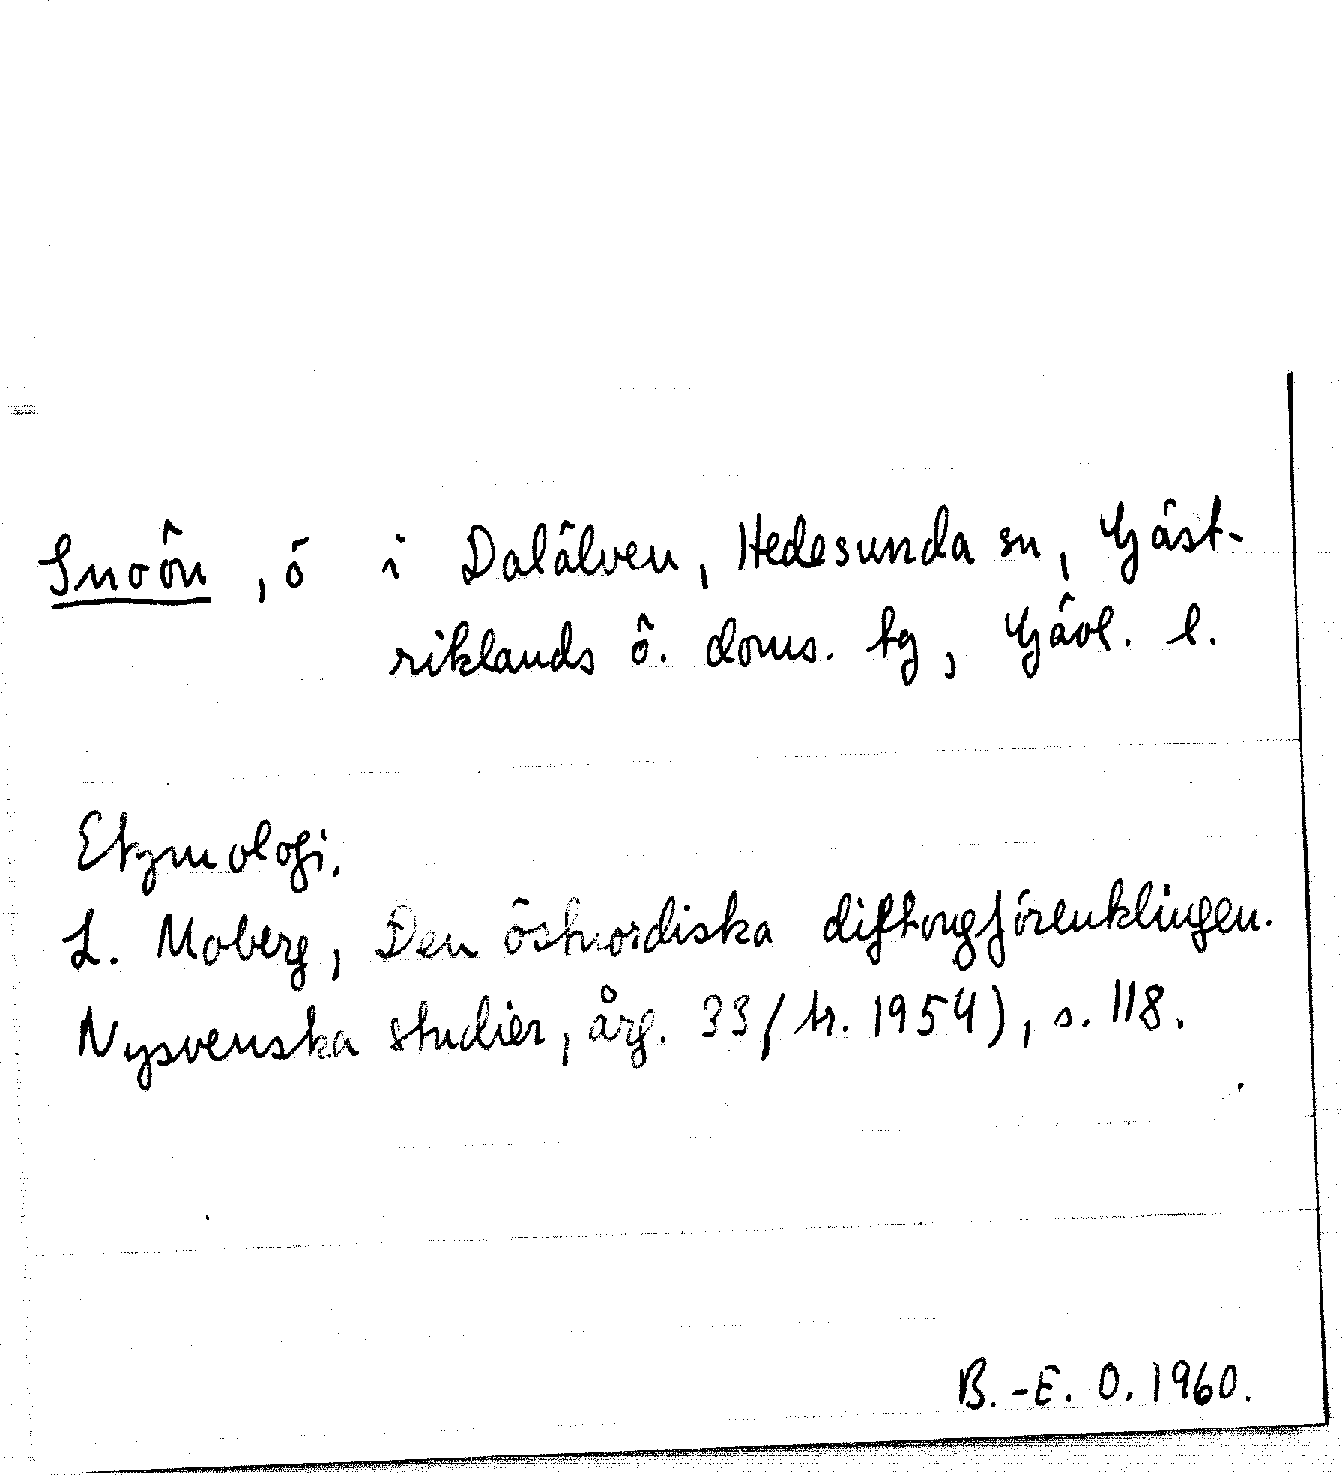 Snoön, ö i Dalälven, Hedesunda sn, Gäst-
riklands ö. doms. tg, Gävl. l.
Etymologi.
L. Moberg, Den östnordiska diftongförenklingen.
Nysvenska studier, årg. 33 (tr. 1954), s. 118.
B.-E. O. 1960.